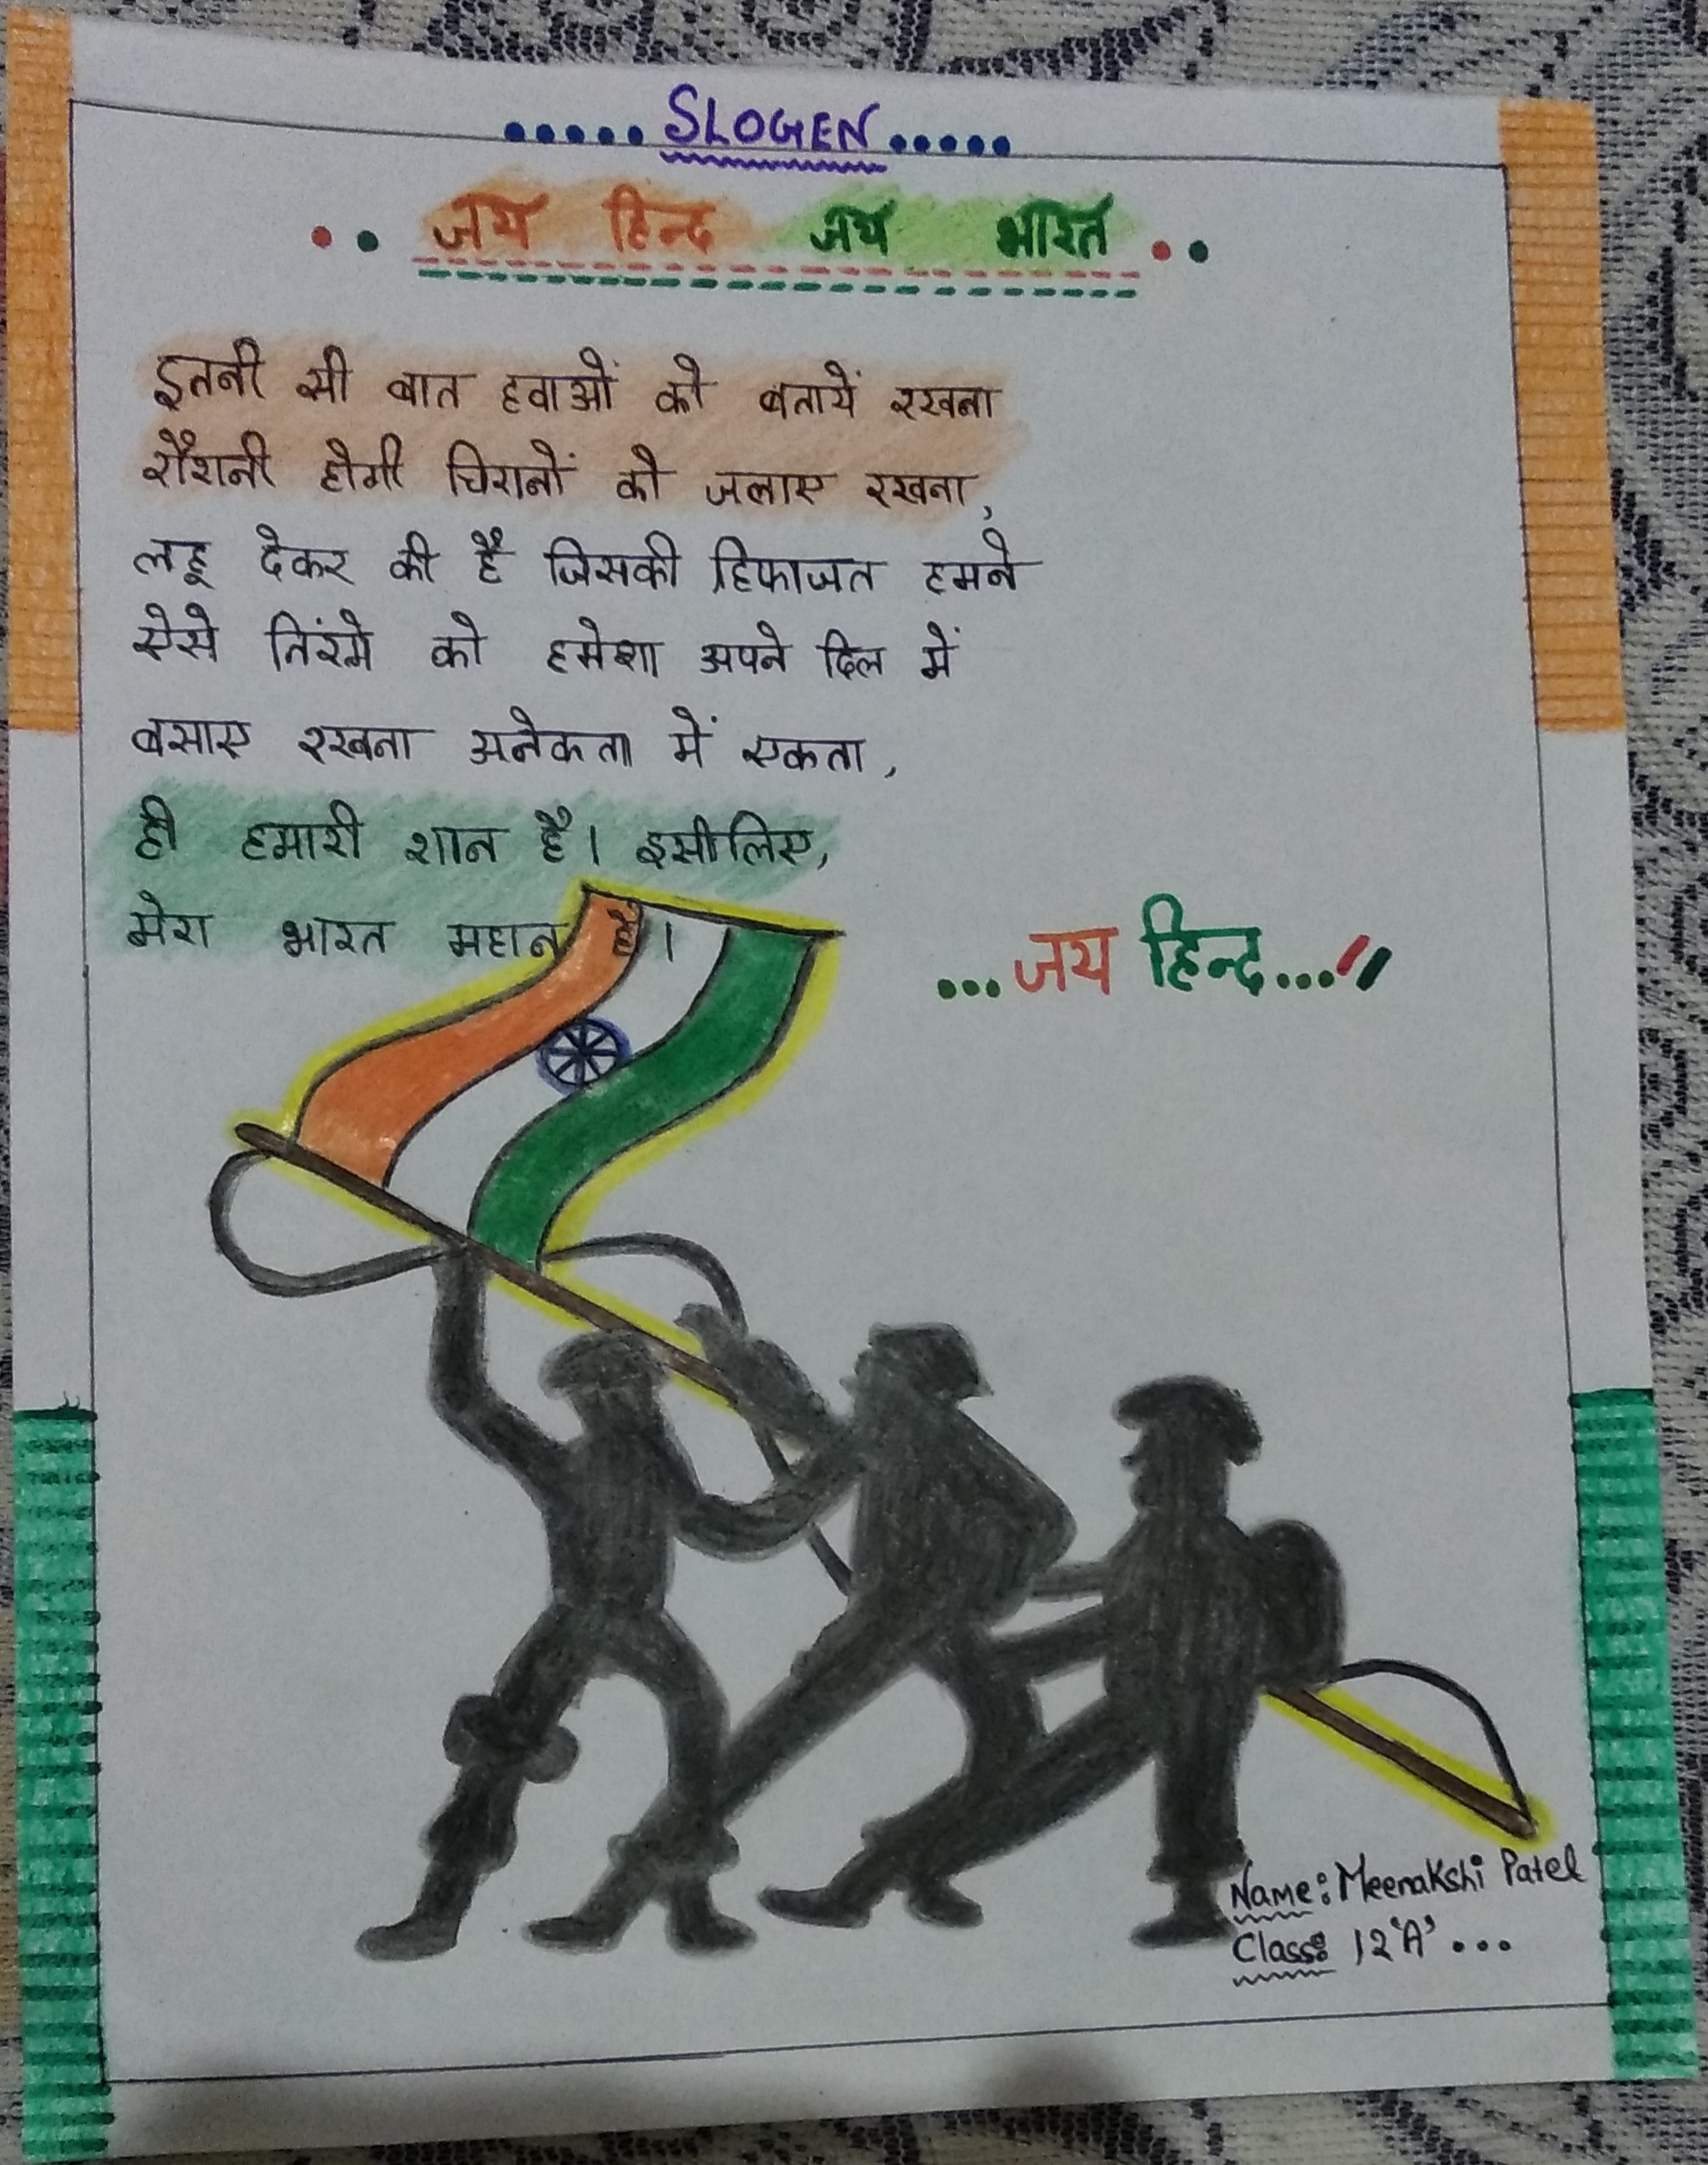 ..... SLOGEN .....
.. जय हिन्द जय भारत ..
इतनी सी बात हवाओं को बतायें रखना
रौशनी होगी चिरागों को जलाए रखना,
लहू देकर की है जिसकी हिफाजत हमने
ऐसे तिंरगे को हमेशा अपने दिल में
बसाए रखना अनेकता में एकता,
ही हमारी शान है। इसीलिए,
मेरा भारत महान है।
...जय हिन्द...//
Name: Meenakshi Patel
Class: 12 'A' ...